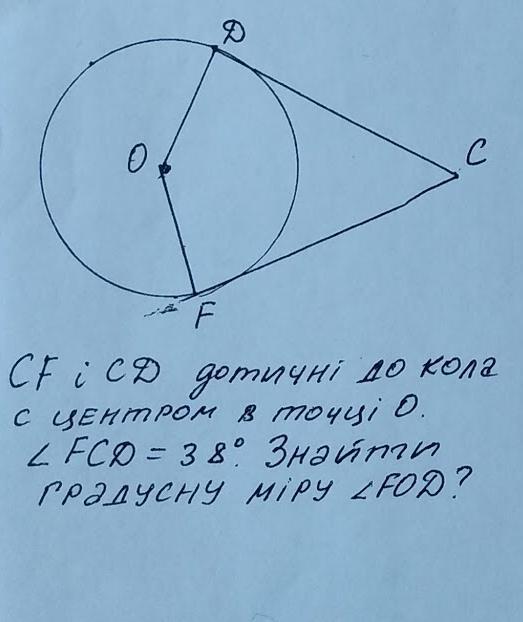 D
O
C
F
CF i CD дотичні до кола
с центром в точці О.
∠FCD = 38°. Знайти
градусну міру ∠FOD?